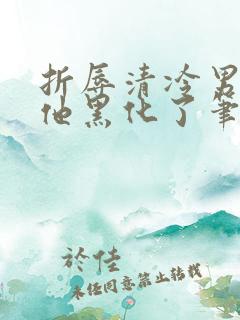 折辱清冷男
他黑化了筆
於佳
未经同意禁止转载